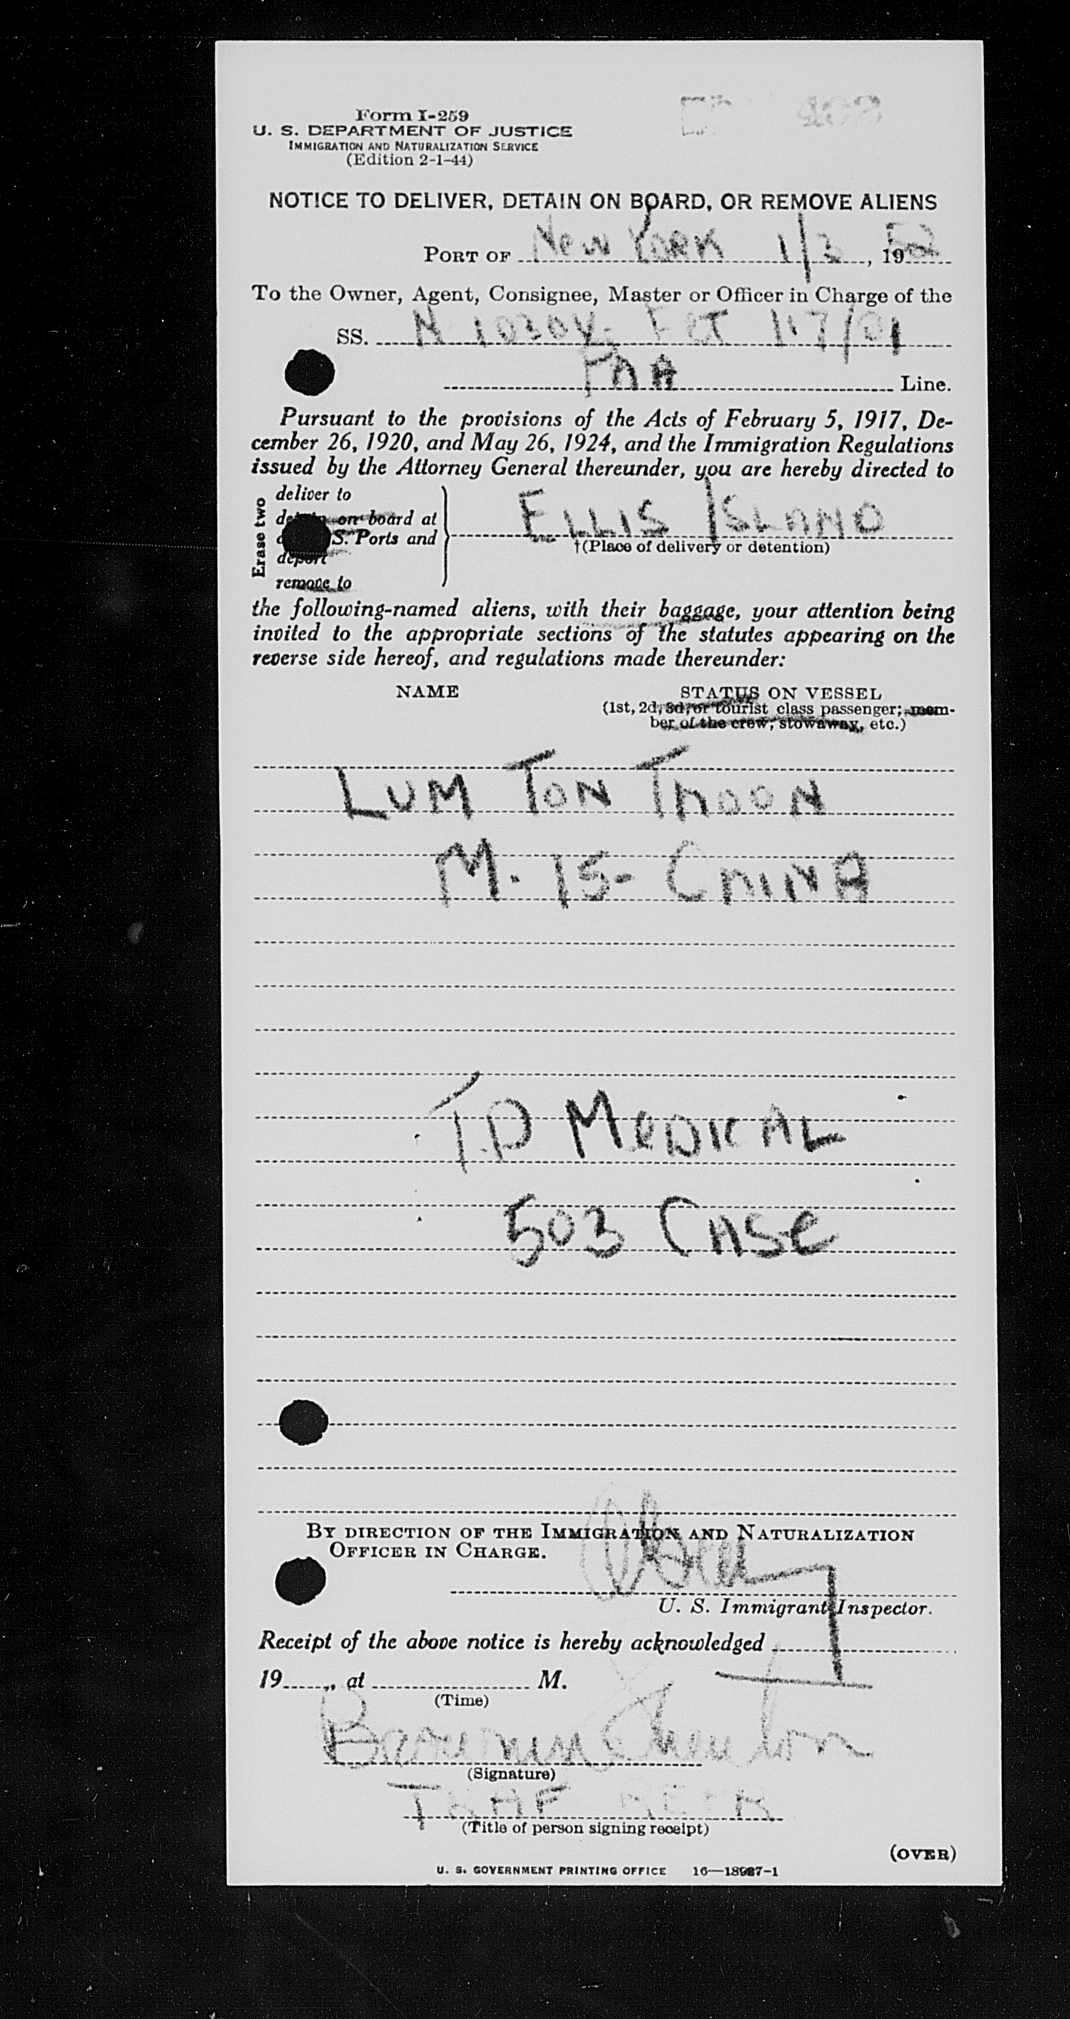 Form I-259
U. S. DEPARTMENT OF JUSTICE
IMMIGRATION AND NATURALIZATION SERVICE
(Edition 2-1-44)
NOTICE TO DELIVER, DETAIN ON BOARD, OR REMOVE ALIENS
PORT OF New YORK 1/3, 1952
To the Owner, Agent, Consignee, Master or Officer in Charge of the
SS.
Line.
Pursuant to the provisions of the Acts of February 5, 1917, De-
cember 26, 1920, and May 26, 1924, and the Immigration Regulations
issued by the Attorney General thereunder, you are hereby directed to
Erase two
deliver to
on board at
S. Ports and
deport
remove to
ELLIS ISLAND
†(Place of delivery or detention)
the following-named aliens, with their baggage, your attention being
invited to the appropriate sections of the statutes appearing on the
reverse side hereof, and regulations made thereunder:
NAME STATUS ON VESSEL
(1st, 2d, 3d, or tourist class passenger; mem-
ber of the crew; stowaway, etc.)
LUM TON THOON
M. 15- CHINA
T.D MeDICAL
503 CASe
BY DIRECTION OF THE IMMIGRATION AND NATURALIZATION
OFFICER IN CHARGE.
U. S. Immigrant Inspector.
Receipt of the above notice is hereby acknowledged
19, at M.
(Time)
(Signature)
(Title of person signing receipt)
(OVER)
U. S. GOVERNMENT PRINTING OFFICE 16—18987-1